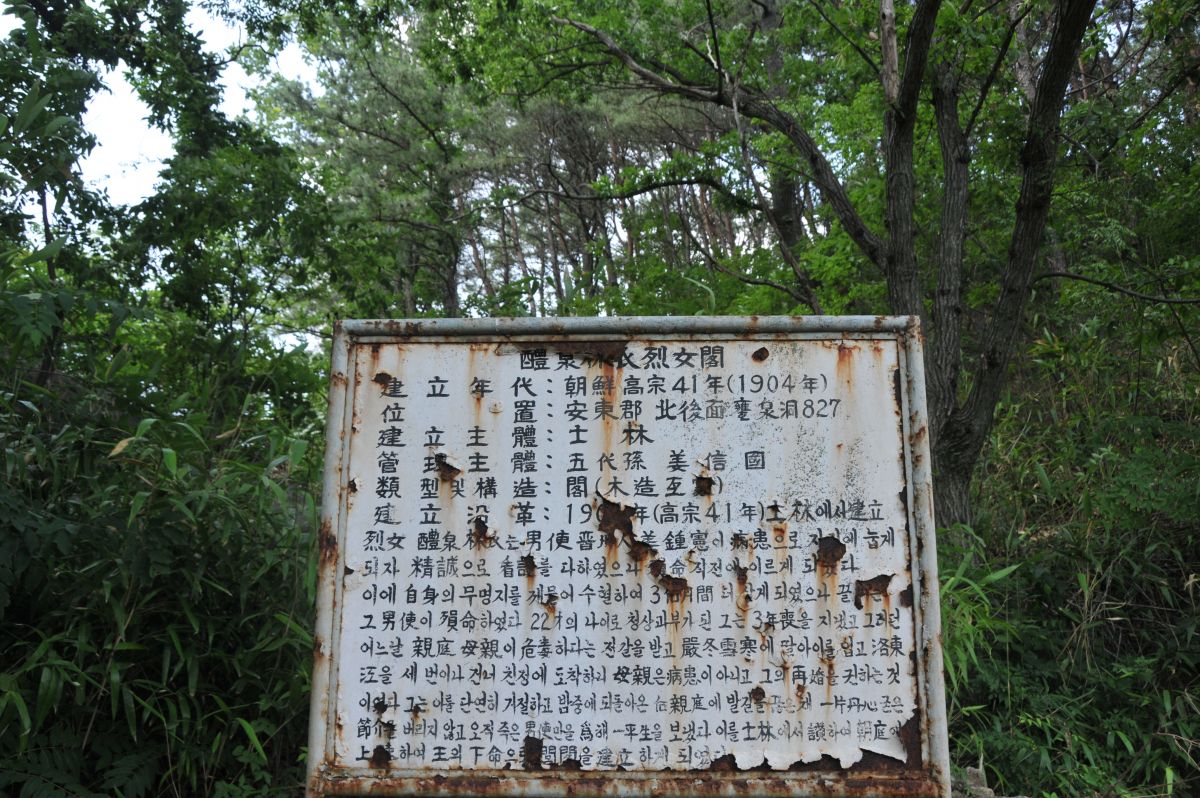 醴泉林氏烈女閣
建立年代: 朝鮮高宗41年(1904年)
位置: 安東郡 北後面 甕泉洞 827
建立主體: 士林
管理主體: 五代孫 姜信國
類型및構造: 閣(木造
建立沿革: (高宗41年) 士林에서 建立
烈女 醴泉林氏는 男便 姜鍾憲이 病患으로 눕게
되자 精誠으로 다하였으나 직전에 이르게
이에 自身의 무명지를 수혈하여 3 間 더 살게 되었으나
그 男便이 殞命하였다 22才의 나이로 청상과부가 된 그는 3年喪을 지냈고 그러던
어느날 親庭 母親이 危毒하다는 전갈을 받고 嚴冬雪寒에 딸아이를 업고 洛東
江을 세 번이나 건너 친정에 도착하니 母親은 病患이 아니고 그의 再婚을 권하는 것
이였다 그는 이를 단연히 거절하고 밤중에 되돌아온 后 親庭에 발길을 끊은채 一片丹心 굳은
節介를 버리지 않고 오직 죽은 男便만을 爲해 一平生을 보냈다 이를 士林에서 讚하여 朝庭에
上 하여 王의 下命으로 閭閣을 建立하게 되었